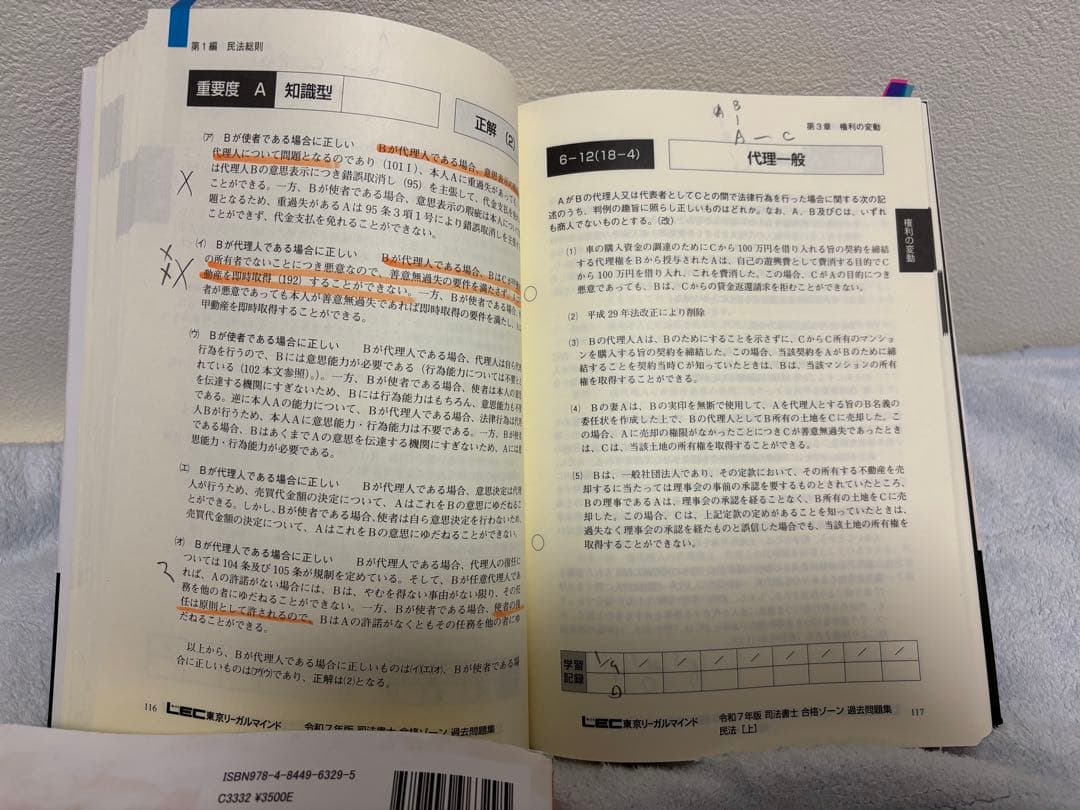 第1編 民法総則
重要度 A 知識型
正解 (2)
(ア) Bが使者である場合に正しい Bが代理人である場合、意思表示の
代理人について問題となるのであり(101Ⅰ)、本人Aに重過失があっても、
は代理人Bの意思表示につき錯誤取消し(95)を主張して、代金支払を免
ことができる。一方、Bが使者である場合、意思表示の瑕疵は本人につい
題となるため、重過失があるAは95条3項1号により錯誤取消しを主張す
ことができず、代金支払を免れることができない。
(イ) Bが代理人である場合に正しい Bが代理人である場合、BはCが甲動
の所有者でないことにつき悪意なので、善意無過失の要件を満たさず、
動産を即時取得(192)することができない。一方、Bが使者である場合、
者が悪意であっても本人が善意無過失であれば即時取得の要件を満たし、
甲動産を即時取得することができる。
(ウ) Bが使者である場合に正しい Bが代理人である場合、代理人は自ら代
行為を行うので、Bには意思能力が必要である(行為能力については不要と
れている(102本文参照)。)。一方、Bが使者である場合、使者は本人の意
を伝達する機関にすぎないため、Bには行為能力はもちろん、意思能力も不
である。逆に本人Aの能力について、Bが代理人である場合、法律行為は代
人Bが行うため、本人Aに意思能力・行為能力は不要である。一方、Bが使
である場合、BはあくまでAの意思を伝達する機関にすぎないため、Aには意
思能力・行為能力が必要である。
(エ) Bが代理人である場合に正しい Bが代理人である場合、意思決定は代理
人が行うため、売買代金額の決定について、AはこれをBの意思にゆだねるこ
とができる。しかし、Bが使者である場合、使者は自ら意思決定を行わないため、
売買代金額の決定について、AはこれをBの意思にゆだねることができない。
(オ) Bが代理人である場合に正しい Bが代理人である場合、代理人の復任に
ついては104条及び105条が規制を定めている。そして、Bが任意代理人であ
れば、Aの許諾がない場合には、Bは、やむを得ない事由がない限り、その任
務を他の者にゆだねることができない。一方、Bが使者である場合、使者の復
任は原則として許されるので、BはAの許諾がなくともその任務を他の者にゆ
だねることができる。
以上から、Bが代理人である場合に正しいものは(イ)(エ)(オ)、Bが使者である場
合に正しいものは(ア)(ウ)であり、正解は(2)となる。
116 LEC東京リーガルマインド 令和7年版 司法書士 合格ゾーン 過去問題集
B
A
A ー C
第3章 権利の変動
6-12(18-4) 代理一般
AがBの代理人又は代表者としてCとの間で法律行為を行った場合に関する次の記
述のうち、判例の趣旨に照らし正しいものはどれか。なお、A、B及びCは、いずれ
も商人でないものとする。(改)
(1) 車の購入資金の調達のためにCから100万円を借り入れる旨の契約を締結
する代理権をBから授与されたAは、自己の遊興費として費消する目的でC
から100万円を借り入れ、これを費消した。この場合、CがAの目的につき
悪意であっても、Bは、Cからの貸金返還請求を拒むことができない。
(2) 平成29年法改正により削除
(3) Bの代理人Aは、Bのためにすることを示さずに、CからC所有のマンショ
ンを購入する旨の契約を締結した。この場合、当該契約をAがBのために締
結することを契約当時Cが知っていたときは、Bは、当該マンションの所有
権を取得することができる。
(4) Bの妻Aは、Bの実印を無断で使用して、Aを代理人とする旨のB名義の
委任状を作成した上で、Bの代理人としてB所有の土地をCに売却した。こ
の場合、Aに売却の権限がなかったことにつきCが善意無過失であったとき
は、Cは、当該土地の所有権を取得することができる。
(5) Bは、一般社団法人であり、その定款において、その所有する不動産を売
却するに当たっては理事会の事前の承認を要するものとされていたところ、
Bの理事であるAは、理事会の承認を経ることなく、B所有の土地をCに売
却した。この場合、Cは、上記定款の定めがあることを知っていたときは、
過失なく理事会の承認を経たものと誤信した場合でも、当該土地の所有権を
取得することができない。
権利の変動
学習
記録
1/9
LEC東京リーガルマインド 令和7年版 司法書士 合格ゾーン 過去問題集 117
民法[上]
ISBN978-4-8449-6329-5
C3332 ¥3500E